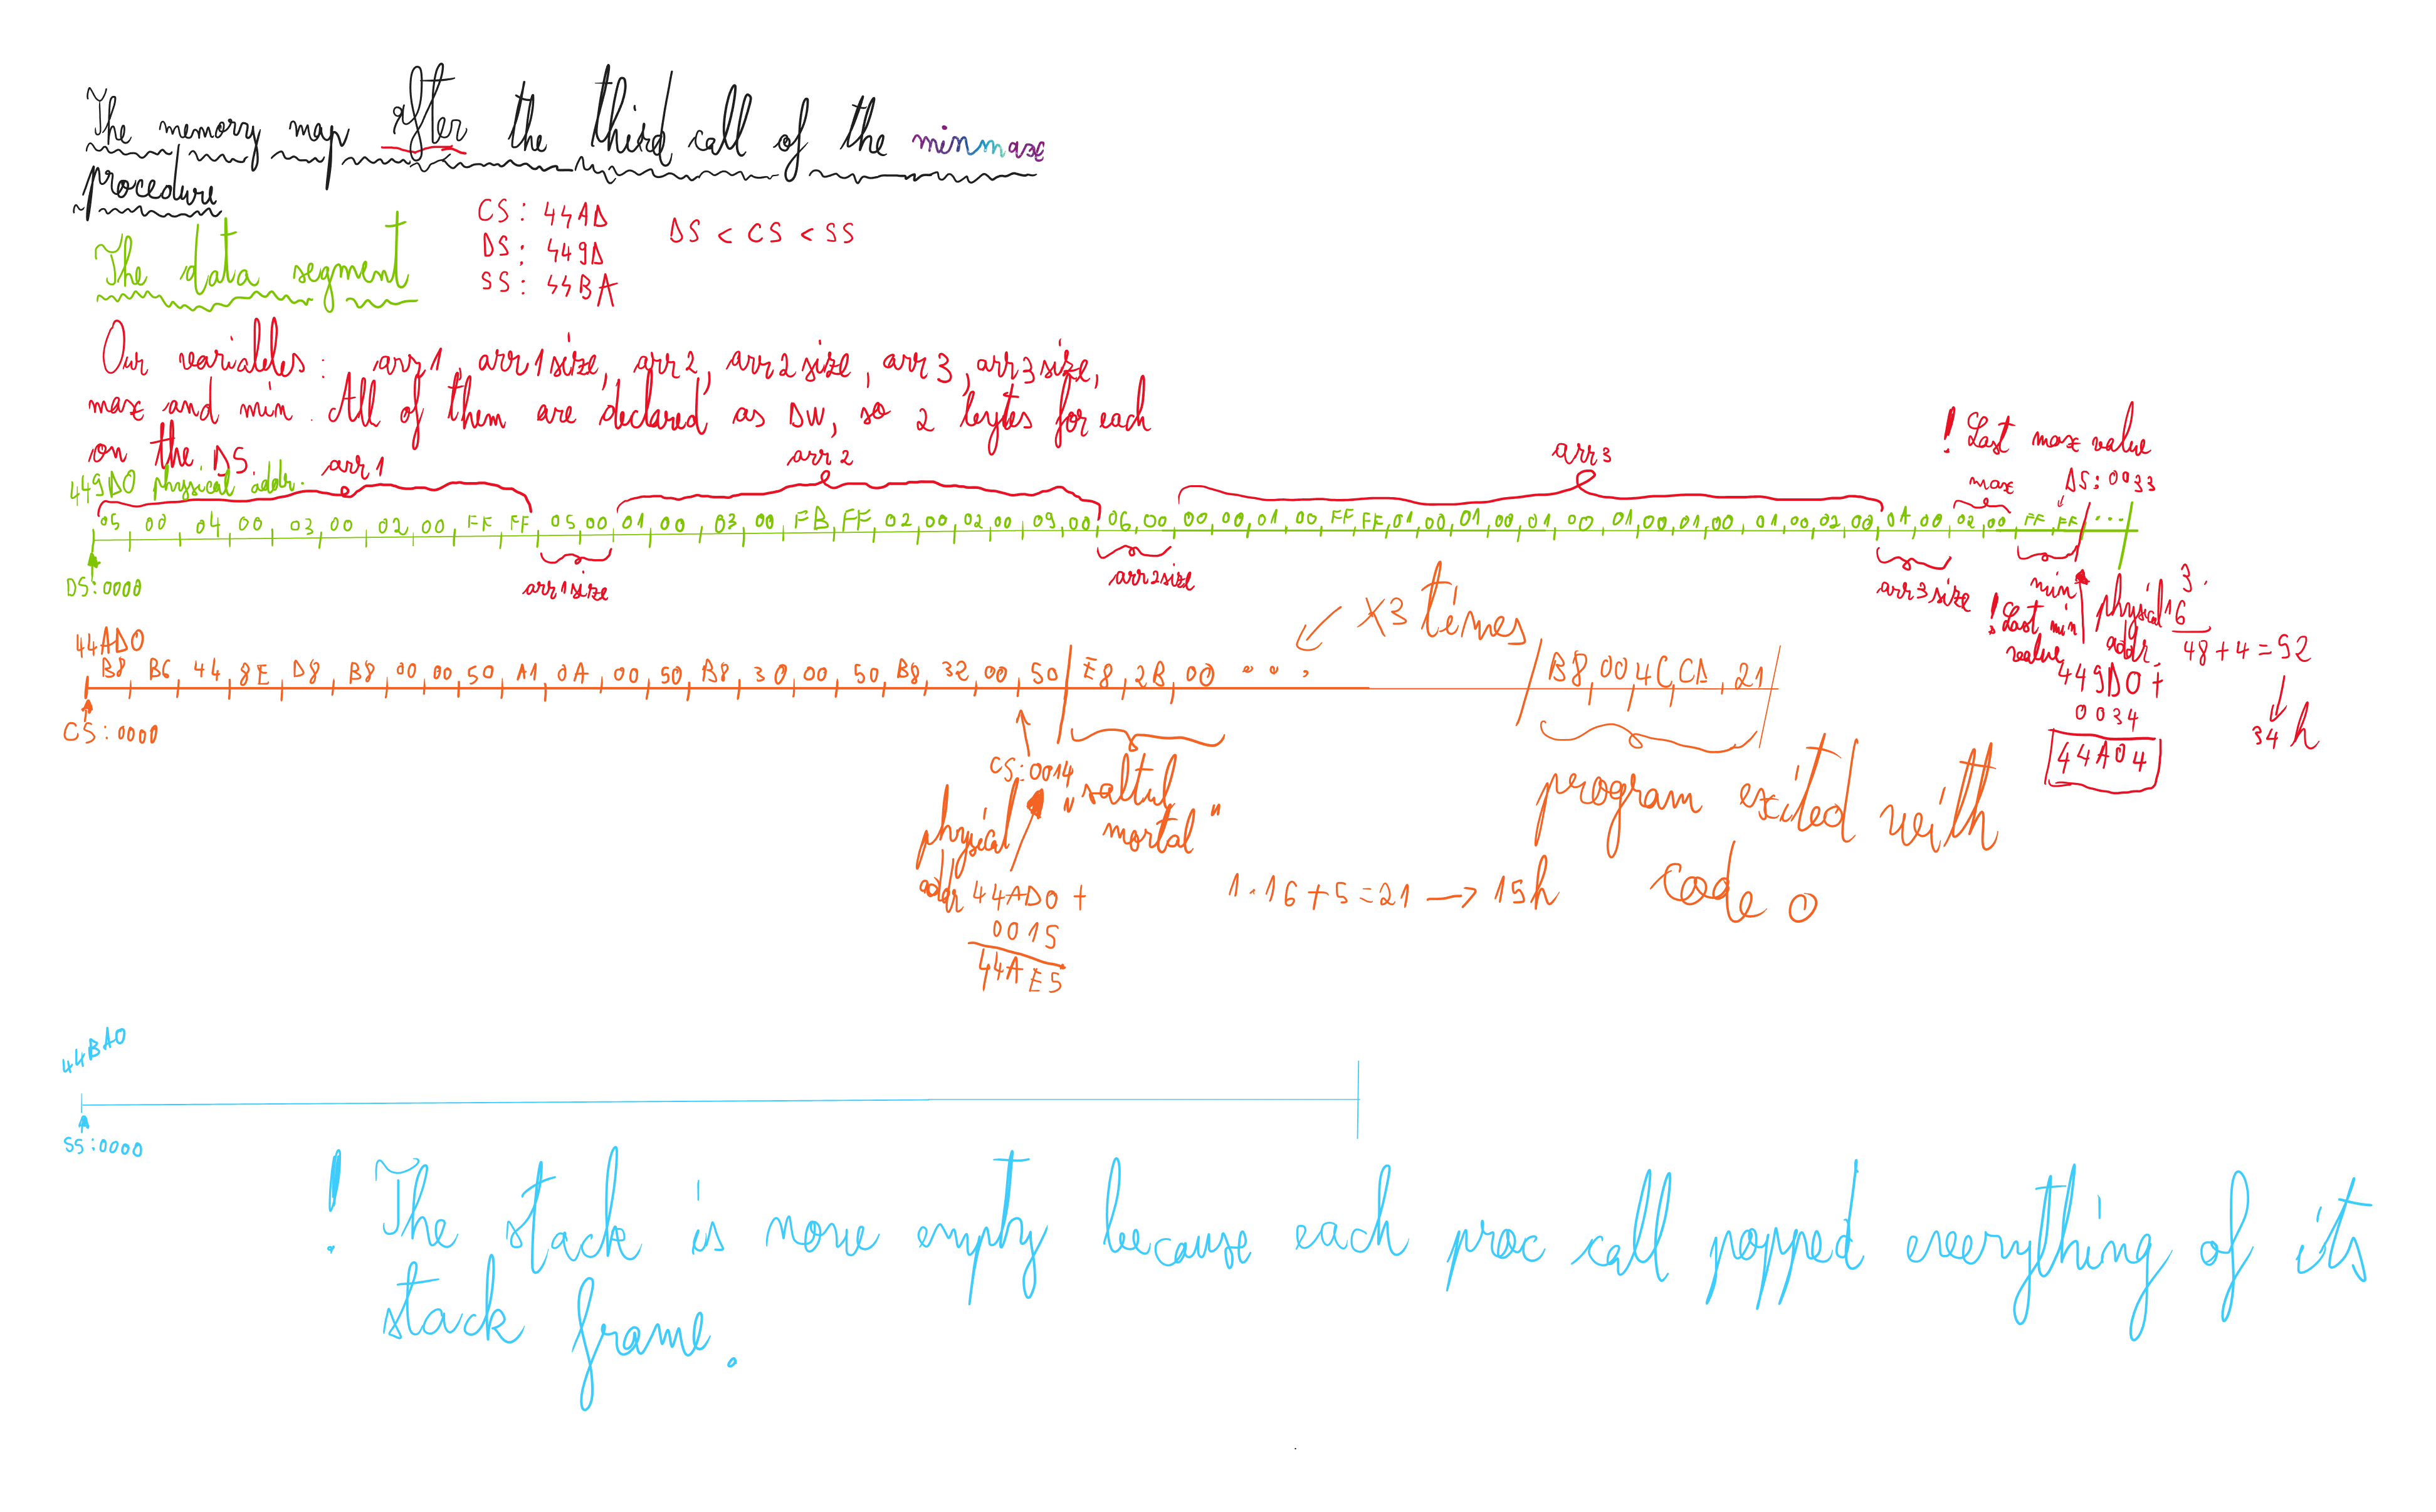 The memory map after the third call of the minmax
procedure
CS: 44AD
DS: 449D
SS: 44BA
DS < CS < SS
The data segment
Our variables: arr1, arr1size, arr2, arr2size, arr3, arr3size,
max and min. All of them are declared as DW, so 2 bytes for each
on the DS.
! Last max value
449D0 physical addr.
arr1
arr2
arr3
max
DS:0033
05 00 04 00 03 00 02 00 FF FF 05 00 01 00 03 00 FB FF 02 00 02 00 09 00 06 00 00 00 01 00 FF FF 01 00 01 00 01 00 01 00 01 00 01 00 02 00 0A 00 02 00 FF FF ...
DS:0000
arr1size
arr2size
arr3size
min
! Last min
value
physical
addr
449D0 +
0034
44A04
3·
16
48+4=52
34h
x3 times
44AD0
B8 B6 44 8E D8 B8 00 00 50 A1 0A 00 50 B8 30 00 50 B8 32 00 50 E8 2B 00 ... B8 00 4C CD 21
CS:0000
CS:0014
physical
addr 44AD0 +
0015
44AE5
"saltul
mortal"
1·16+5=21 → 15h
program exited with
code 0
44BA0
SS:0000
! The stack is none empty because each proc call popped everything of its
stack frame.